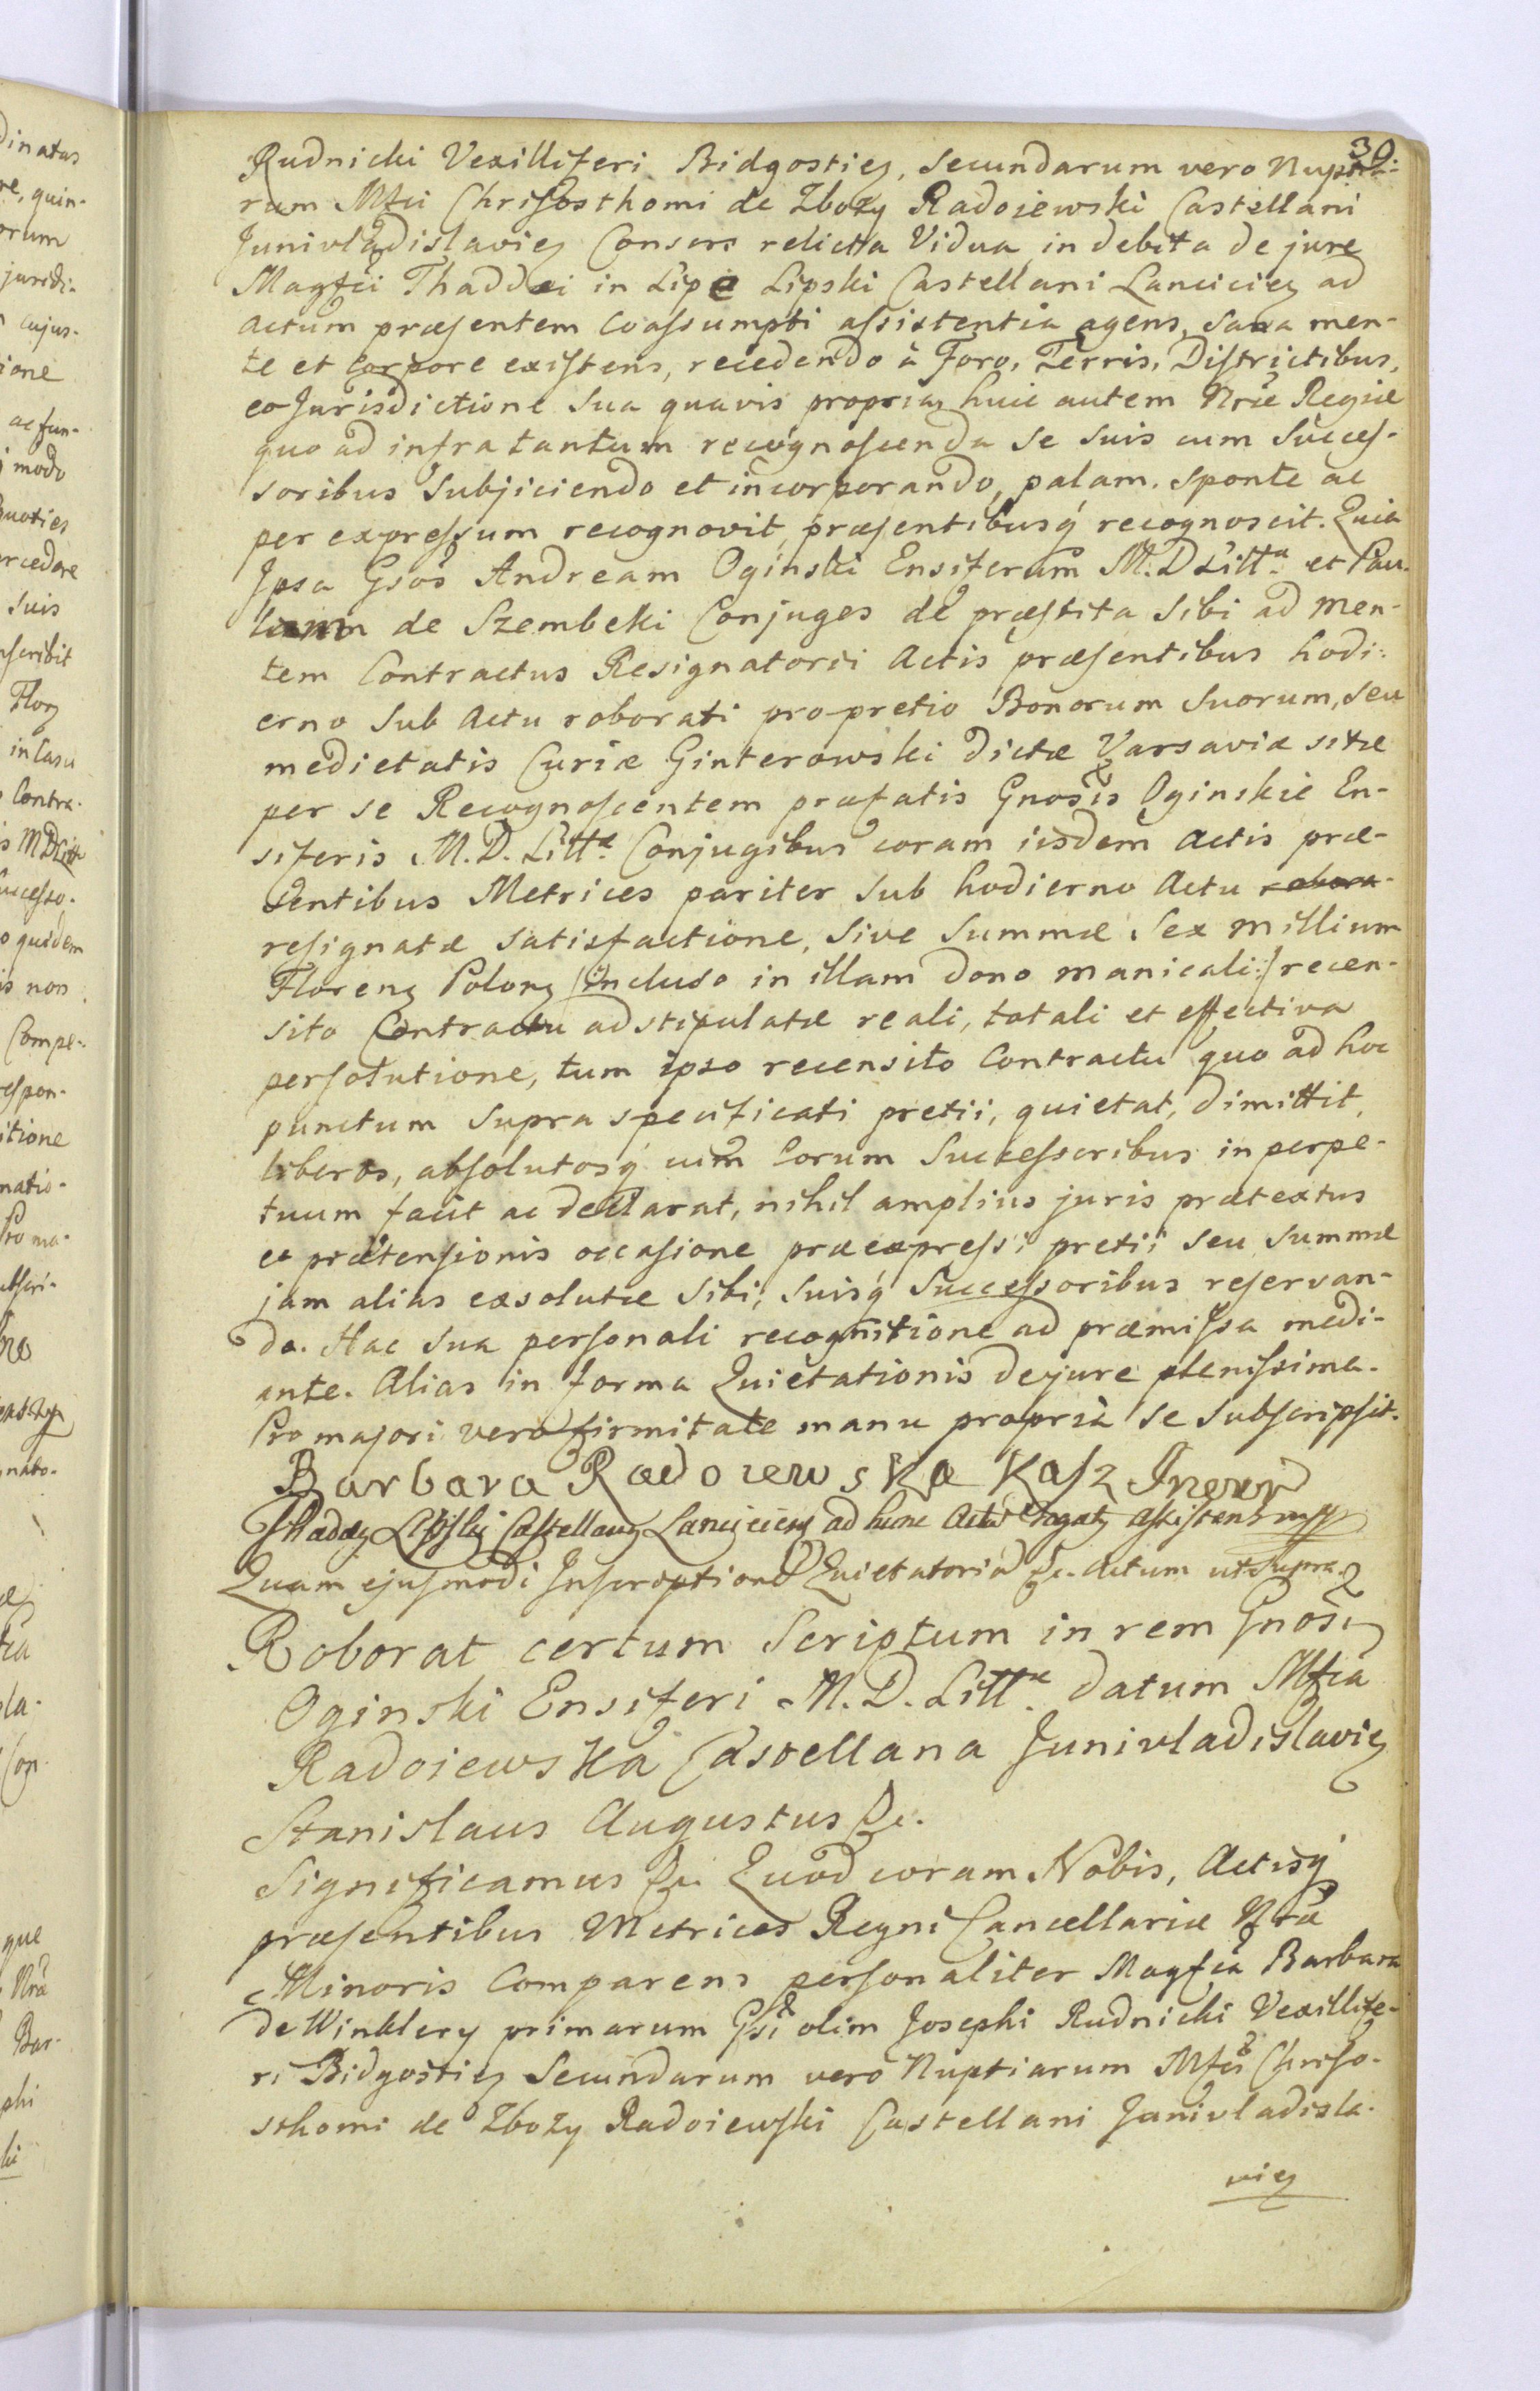 30.
Rudnicki Vexilliferi Bidgostieɳ, Secundarum vero Nuptia-
rum Mfci Chrisosthomi de Zbozy Radojewski Castellani
Junivladislavieɳ Consors relicta Vidua, in debita de jure
Magfci Thaddæi in Lipe Lipski Castellani Lancicieɳ ad
actum præsentem Coassumpti assistentia agens, sana men-
te et corpore existens, recedendo à Foro, Terris, Districtibus,
eo Jurisdictione sua quavis propria, huic autem Nræ Regiæ
quo ad infra tantum recognoscenda se suis cum Succes-
soribus Subjiciendo et incorporando, palam, sponte ac
per expressum recognovit, præsentibusq́ recognoscit. Quia
Ipsa Gsos Andream Oginski Ensiferum M. D Litt: et Pau-
lam de Szembeki Conjuges de præstita sibi ad men-
tem Contractus Resignatorii Actis præsentibus hodi-
erno sub Actu roborati pro pretio Bonorum Suorum, seu
medietatis Curiæ Ginterowski dictæ Varsaviæ sitæ
per se Recognoscentem præfatis Gnosis Oginskie En-
siferis M. D. Litt: Conjugibus coram iisdem Actis præ-
sentibus Metrices pariter sub hodierno Actu robora-
resignatæ satisfactione, sive Summæ Sex millium
Floreɳ Poloɳ /:incluso in illam dono manicali:/ recen-
sito Contractu adstipulatæ reali, totali et effectiva
persolutione, tum ipso recensito Contractu quo ad hoc
punctum supra specificati pretii, quietat, dimittit,
liberos, absolutosq́ cum Eorum Successoribus in perpe-
tuum facit ac declarat, nihil amplius juris prætextus
et prætensionis occasione præexpressi pretii seu Summæ
jam alias exsolutæ Sibi, Suisq́ Successoribus reservan-
do. Hac sua personali recognitione ad præmissa medi-
ante. Alias in forma Quietationis de jure plenissima.
Pro majori vero firmitate manu propria se subscripsit.
Barbara Radoiewska Kasz Inowr
Thadæɣ Lipski Castellanɣ Lancicieɳ ad hunc Actū rogatɣ assistens mpp
Quam ejusmodi Inscriptionē Quietatoriā &c. Actum ut supra.
Roborat certum Scriptum in rem Gnosi
Oginski Ensiferi M. D. Litt: datum Mfca
Radoiewska Castellana Junivladislavieɳ
Stanislaus Augustus &c.
Significamus &c. Quod coram Nobis, Actisq́
præsentibus Metrices Regni Cancellariæ Nræ
Minoris Comparens personaliter Magfca Barbara
de Winklery primarum Gsi olim Josephi Rudnicki Vexillife-
ri Bidgostieɳ Secundarum vero Nuptiarum Mfci Chriso-
sthomi de Zbozy Radoiewski Castellani Junivladisla-
vieɳ